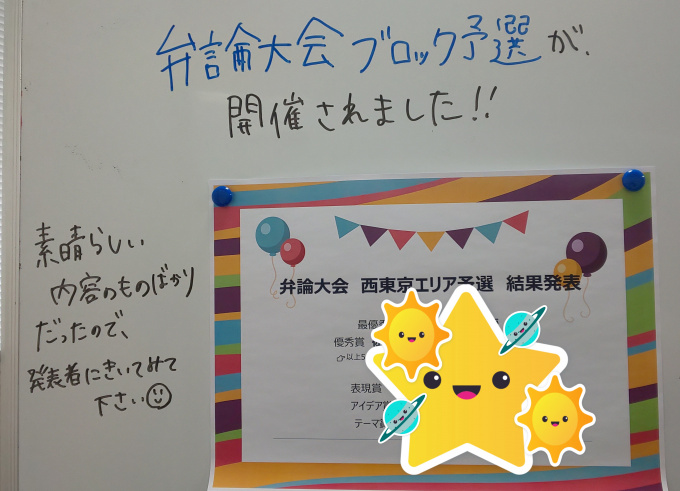 弁論大会 ブロック予選が、
開催されました!!
素晴らしい
内容のものばかり
だったので、
発表者にきいてみて
下さい
弁論大会 西東京エリア予選 結果発表
最優
優秀賞
以上5
表現賞
アイデア賞
テーマ